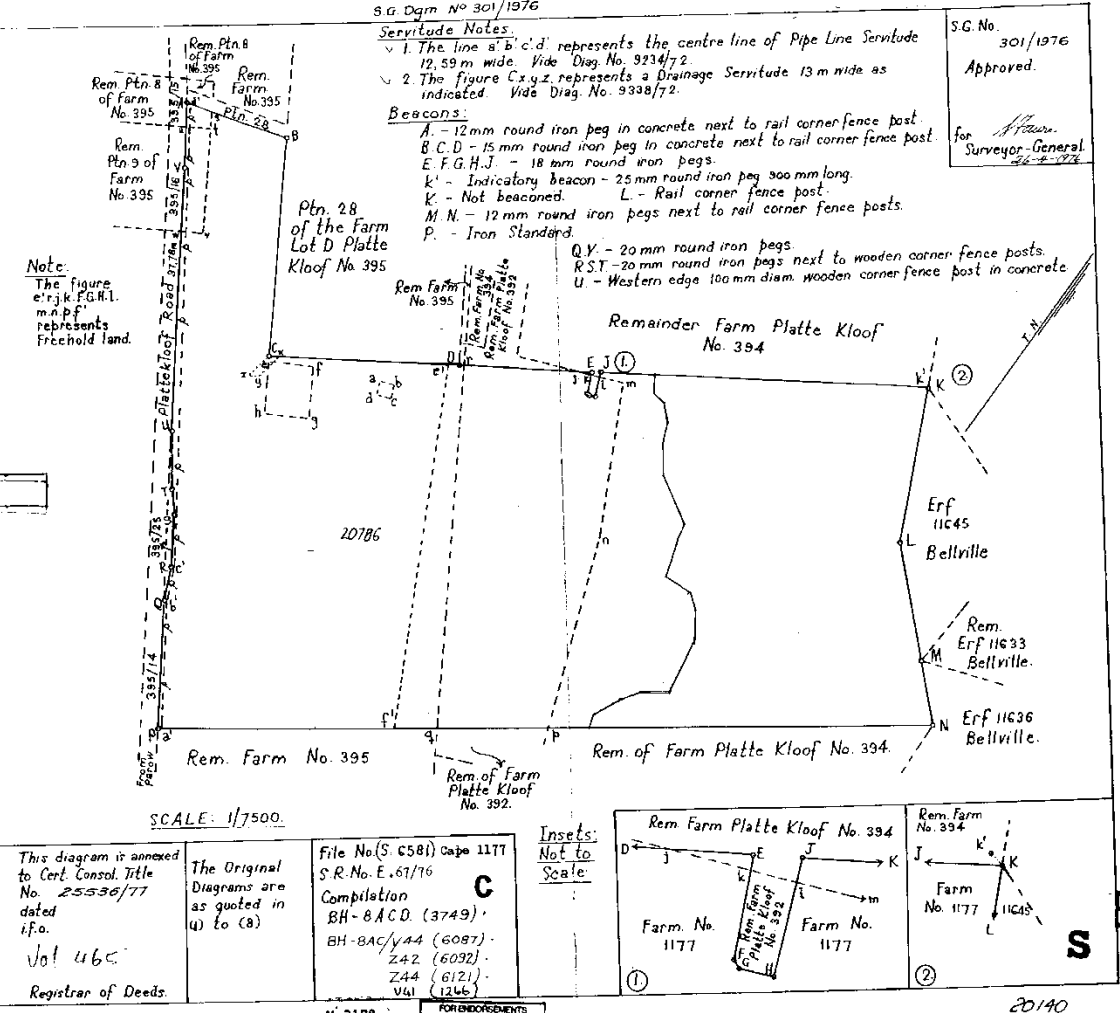 S.G. Dgm Nº 301/1976
Servitude Notes:
1. The line a' b' c' d' represents the centre line of Pipe Line Servitude
12,59 m wide. Vide Diag. No. 9234/72.
2. The figure C x.y.z. represents a Drainage Servitude 13 m wide as
indicated. Vide Diag. No. 9338/72.
Beacons:
A. - 12mm round iron peg in concrete next to rail corner fence post.
B.C.D - 15 mm round iron peg in concrete next to rail corner fence post.
E.F.G.H.J. - 18 mm round iron pegs.
k' - Indicatory beacon - 25mm round iron peg 900 mm long.
K. - Not beaconed. L. - Rail corner fence post.
M.N. - 12 mm round iron pegs next to rail corner fence posts.
P. - Iron Standard.
Q.V. - 20 mm round iron pegs.
R.S.T. - 20 mm round iron pegs next to wooden corner fence posts.
U. - Western edge 100 mm diam. wooden corner fence post in concrete
S.G. No.
301/1976
Approved.
for
Surveyor-General.
26-4-1976
Rem. Ptn. 8
of Farm
No. 395
Rem.
Farm.
No. 395
Rem. Ptn. 8
of Farm
No. 395
Ptn. 28
B
Rem.
Ptn. 9 of
Farm
No. 395
395/15
395/16
Plattekloof Road 37,78m
Ptn. 28
of the Farm
Lot D Platte
Kloof No. 395
Note:
The figure
e'.r.j.k.F.G.H.l.
m.n.p.f'
represents
Freehold land.
Rem Farm
No. 395
Rem. Farm No.
394
Rem. Farm Platte
Kloof No. 392
Remainder Farm Platte Kloof
No. 394
T.N.
Cx
x y z f
h g
a b
d c
e' D r
j E J 1
F l m
k' K 2
20786
n
Erf
11645
Bellville
L
Rem.
Erf 11633
Bellville.
M
N
Erf 11636
Bellville.
395/25
395/14
R C'
Q
P a'
f' q p
From
Parow
Rem. Farm No. 395
Rem. of Farm
Platte Kloof
No. 392.
Rem. of Farm Platte Kloof No. 394.
SCALE: 1/7500.
This diagram is annexed
to Cert. Consol. Title
No. 25536/77
dated
i.f.o.
Registrar of Deeds.
The Original
Diagrams are
as quoted in
(1) to (8)
File No.(S. 6581) Cape 1177
S.R. No. E.67/76
Compilation
BH-8ACD. (3749).
BH-8AC/Y44 (6087).
Z42 (6092).
Z44 (6121).
V41 (1266)
C
Insets:
Not to
Scale:
Rem. Farm Platte Kloof No. 394
D j E J K
k l m
Farm. No.
1177
Rem. Farm
Platte Kloof
No. 392
Farm No.
1177
F
G H
1.
Rem. Farm
No. 394
J k' K
Farm
No. 1177
11645
L
2.
S
FOR ENDORSEMENTS
20140